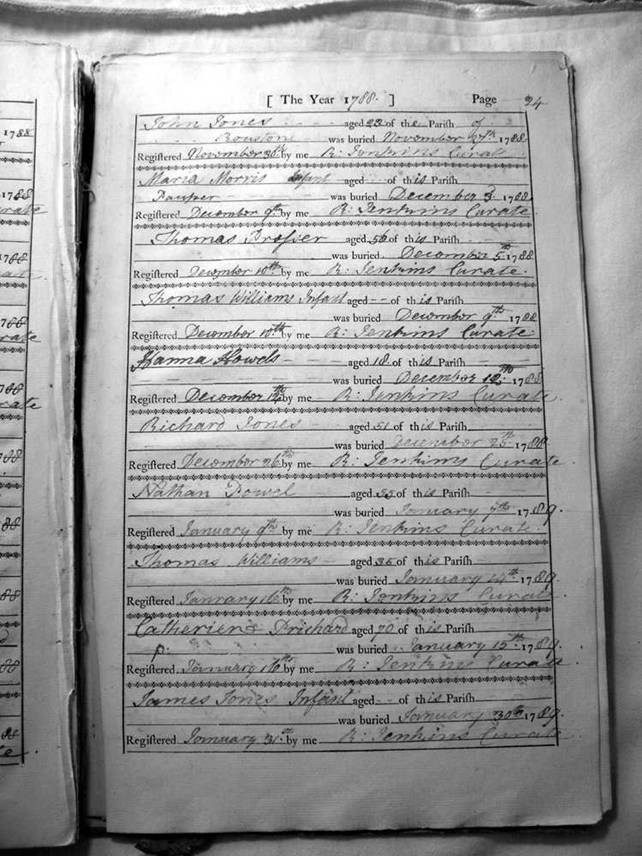 [ The Year 1788. ] Page 24
John Jones aged 23 of the Parish of
Rouston was buried November 27th. 1788
Registered November 30th by me R: Jenkins Curate
Maria Morris Infant aged - of this Parish
Pauper was buried December 3. 1788
Registered December 9th. by me R: Jenkins Curate
Thomas Prosser aged 56 of this Parish
was buried December 5th 1788
Registered December 10th. by me R: Jenkins Curate
Thomas Williams Infant aged - - of this Parish
was buried December 9th 1788
Registered December 10th. by me R: Jenkins Curate
Hanna Howels aged 18 of this Parish
was buried December 12th 1788
Registered December by me R: Jenkins Curate
Richard Jones aged 51 of this Parish
was buried December 25th 1788
Registered December 26th by me R: Jenkins Curate
Nathan Powel aged 35 of this Parish
was buried January 7th. 1789.
Registered January 9th. by me R: Jenkins Curate
Thomas Williams aged 35 of this Parish
was buried January 14th. 1789.
Registered January 16th by me R: Jenkins Curate
Catherien Prichard aged 70 of this Parish
P: was buried January 15th. 1789.
Registered January 16th by me R: Jenkins Curate
James Jones Infant aged - - of this Parish
was buried January 30th 1789.
Registered January 31st. by me R: Jenkins Curate
1788
1788
1788
1788
1788